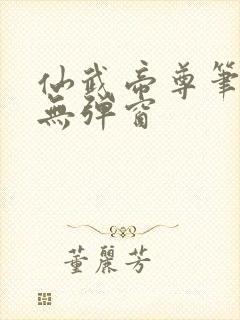 仙武帝尊筆
無彈窗
董麗芳